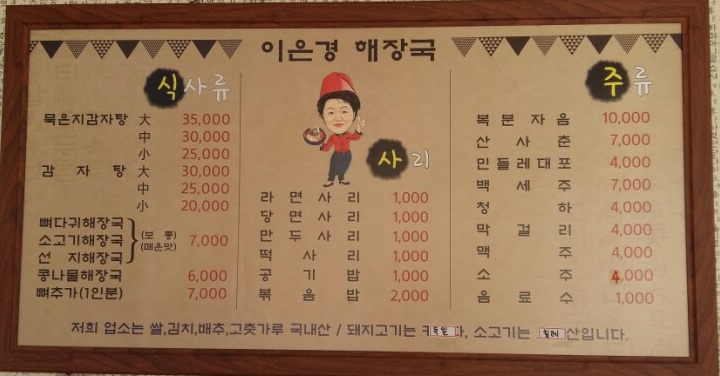 이은경 해장국
식사류
묵은지감자탕 大 35,000
中 30,000
小 25,000
감자탕 大 30,000
中 25,000
小 20,000
뼈다귀해장국
소고기해장국 (보통) (매운맛) 7,000
선지해장국
콩나물해장국 6,000
뼈추가(1인분) 7,000
사리
라면사리 1,000
당면사리 1,000
만두사리 1,000
떡사리 1,000
공기밥 1,000
볶음밥 2,000
주류
복분자음 10,000
산사춘 7,000
민들레대포 4,000
백세주 7,000
청하 4,000
막걸리 4,000
맥주 4,000
소주 4,000
음료수 1,000
저희 업소는 쌀,김치,배추,고춧가루 국내산 / 돼지고기는 독일 다, 소고기는 산입니다.